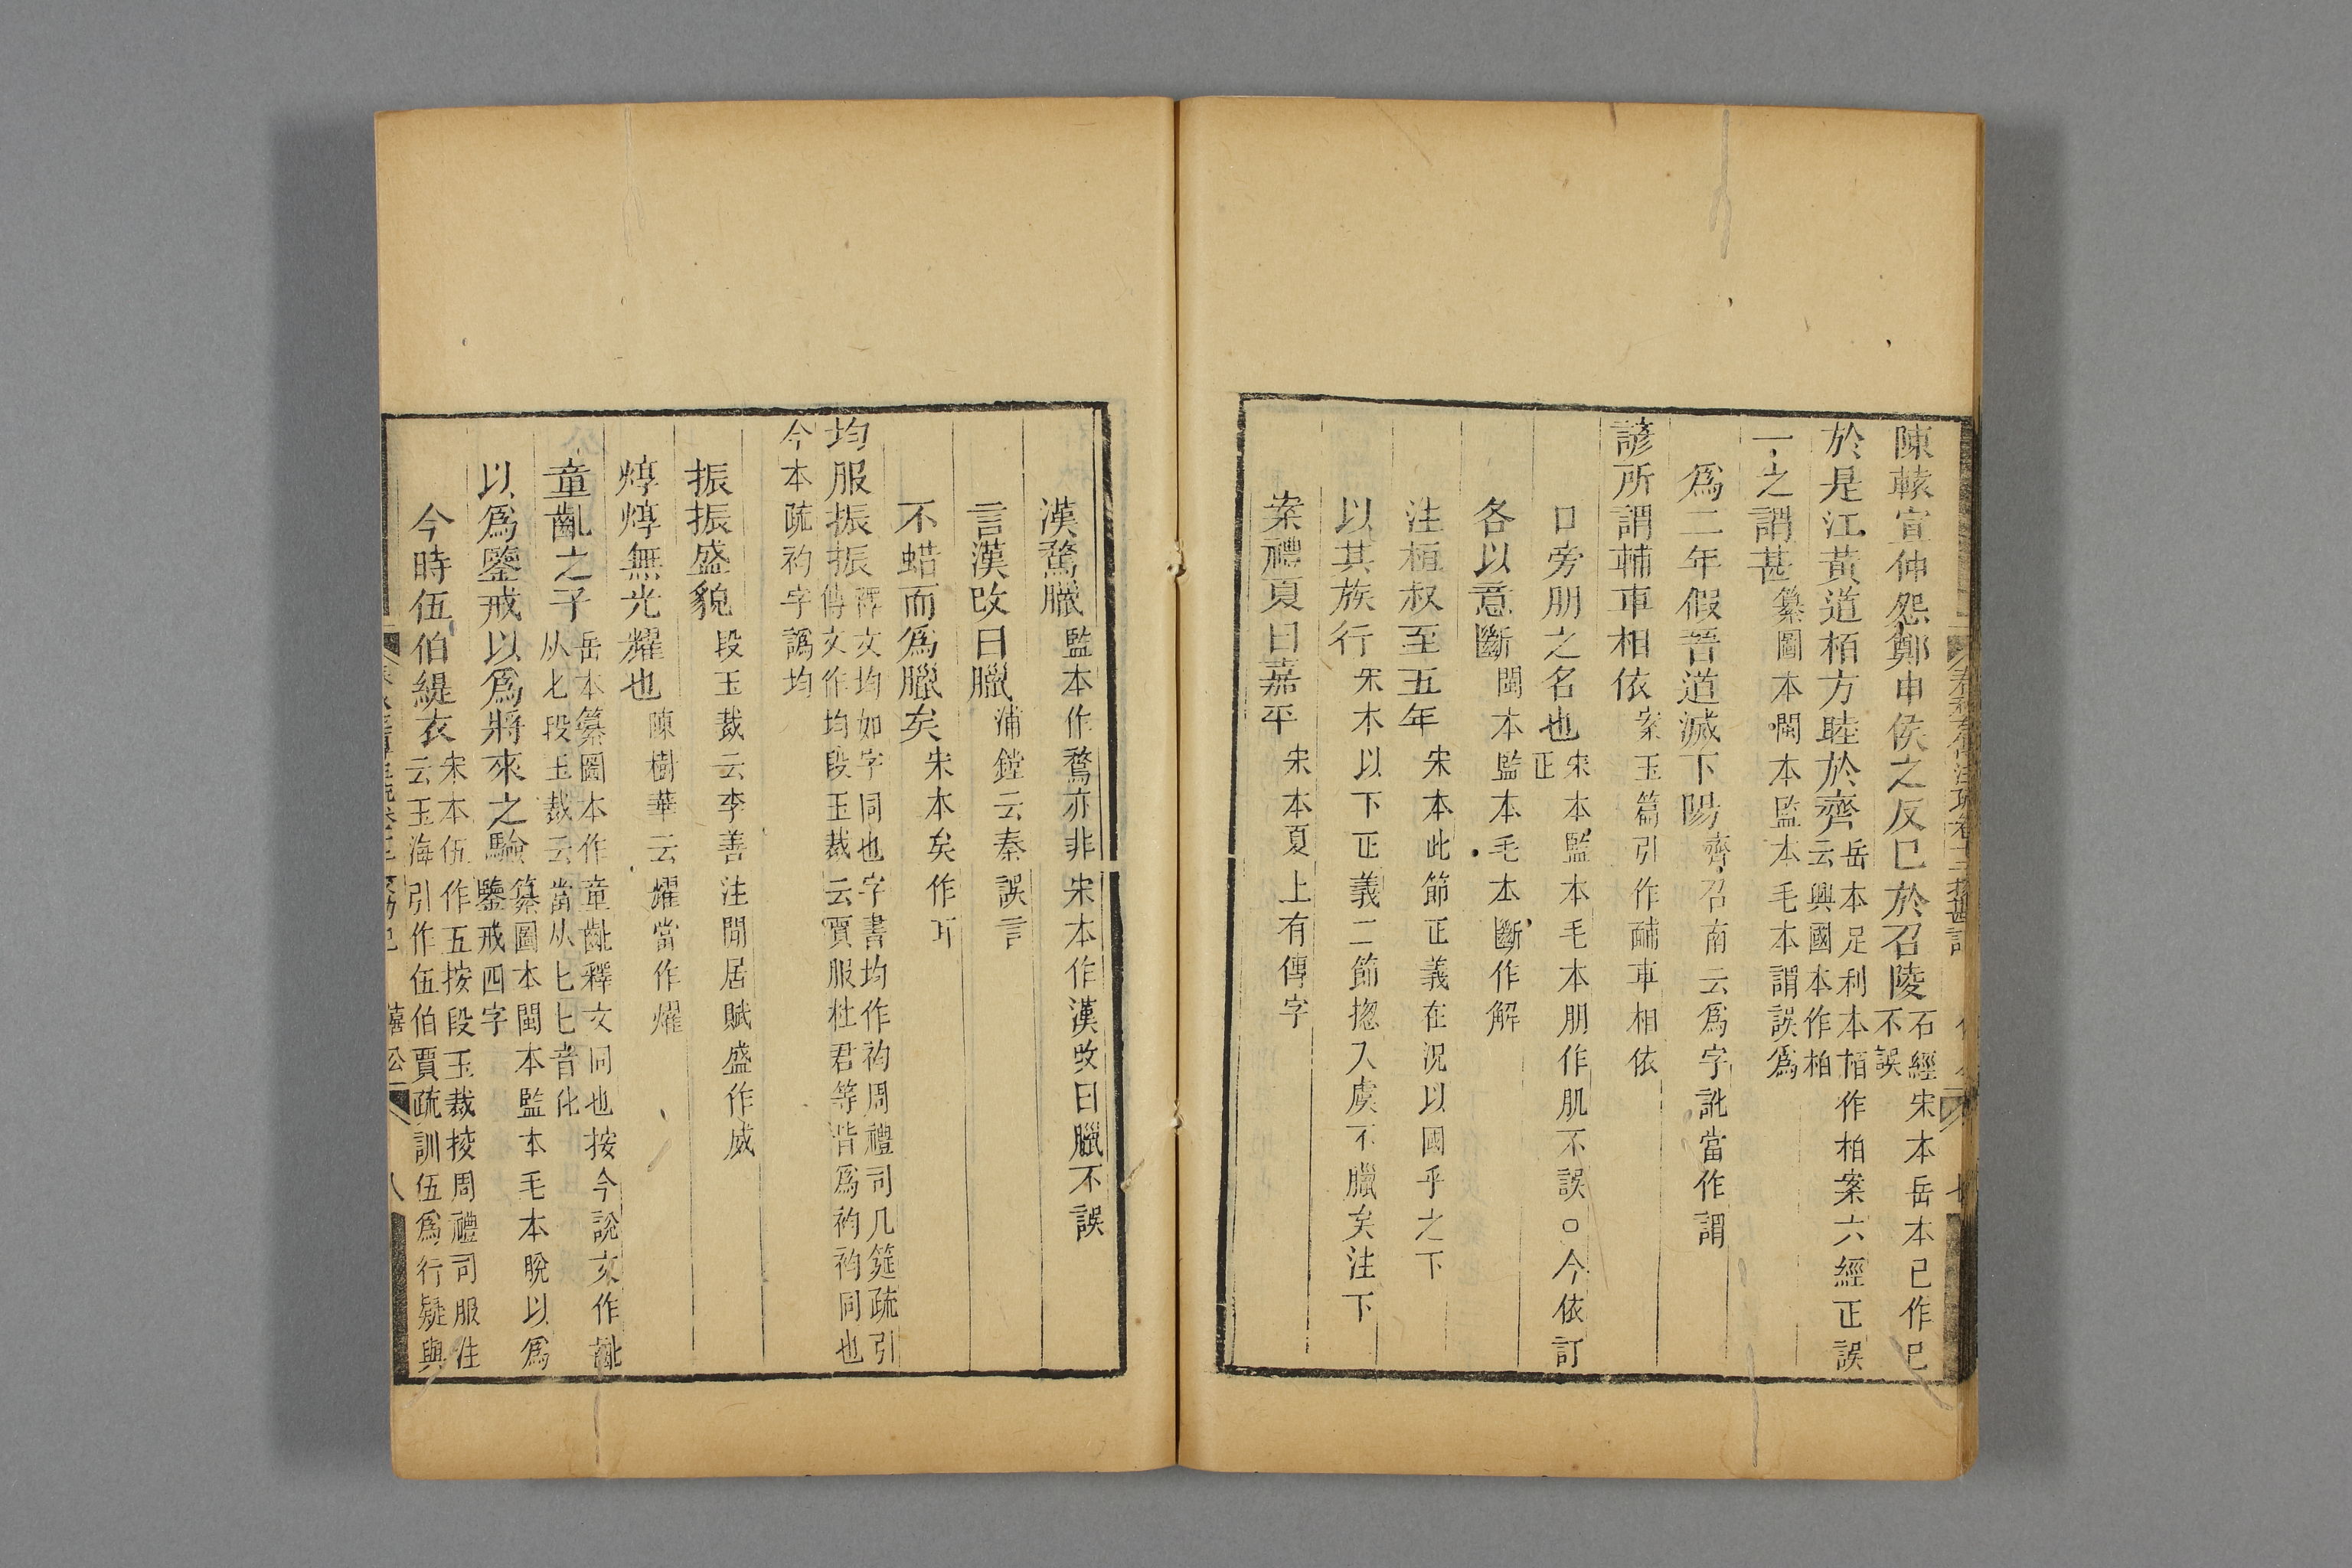 陳轅宣仲怨鄭申侯之反巳於召陵石經宋本岳本已作己不誤
於是江黃道栢方睦於齊岳本足利本栢作柏案六經正誤云興國本作柏
一之謂甚纂圖本閩本監本毛本謂誤爲
爲二年假晉道滅下陽齊召南云爲字訛當作謂
諺所謂輔車相依案玉篇引作䩉車相依
口旁肌之名也宋本監本毛本肌作肌不誤○今依訂正
各以意斷閩本監本毛本斷作解
注桓叔至五年宋本此節正義在況以國乎之下
以其族行宋本以下正義二節揔入虞不臘矣注下
案禮夏曰嘉平宋本夏上有傳字
漢騖臘監本作鶩亦非宋本作漢改曰臘不誤
言漢改曰臘浦鏜云秦誤言
不蜡而爲臘矣宋本矣作耳
均服振振釋文均如字同也字書均作袀周禮司几筵疏引傳文作均段玉裁云賈服杜君等皆爲袀袀同也
今本疏袀字譌均
振振盛貌段玉裁云李善注閒居賦盛作威
焞焞無光耀也陳樹華云耀當作燿
童齔之子岳本纂圖本作童齔釋文同也按今說文作齔从匕段玉裁云當从七七音化
以爲鑒戒以爲將來之驗纂圖本閩本監本毛本脫以爲鑒戒四字
今時伍伯緹衣宋本伍作五按段玉裁挍周禮司服注云玉海引作伍伯賈疏訓伍爲行疑與